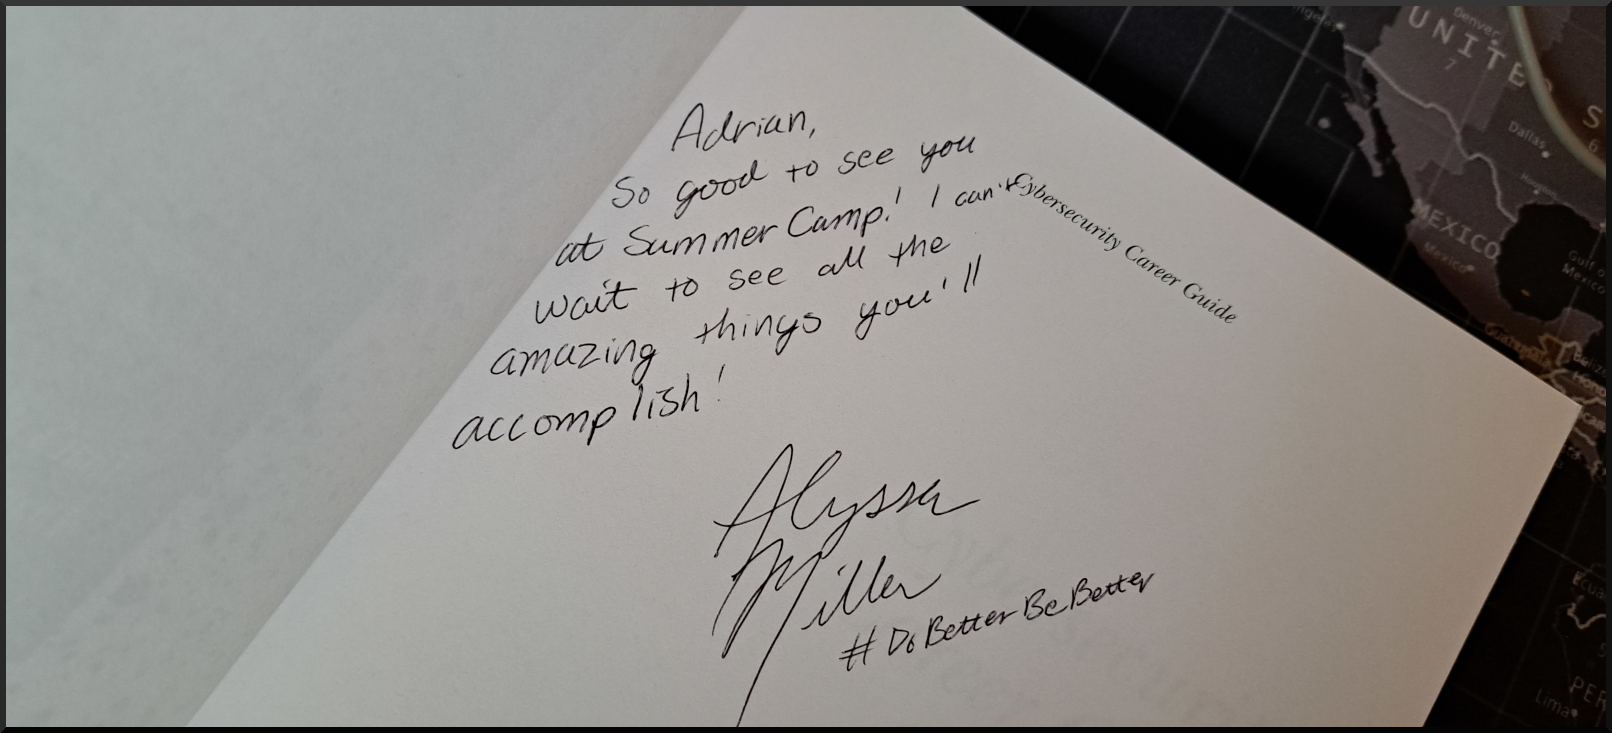 Adrian,
So good to see you
at Summer Camp! I can't
wait to see all the
amazing things you'll
accomplish!
Alyssa
Miller
#DoBetterBeBetter
Cybersecurity Career Guide
Denver
UNITED S
7
6
Dallas
Houston
MEXICO
Mexico
Gulf of
Mexico
Guatemala
Lima